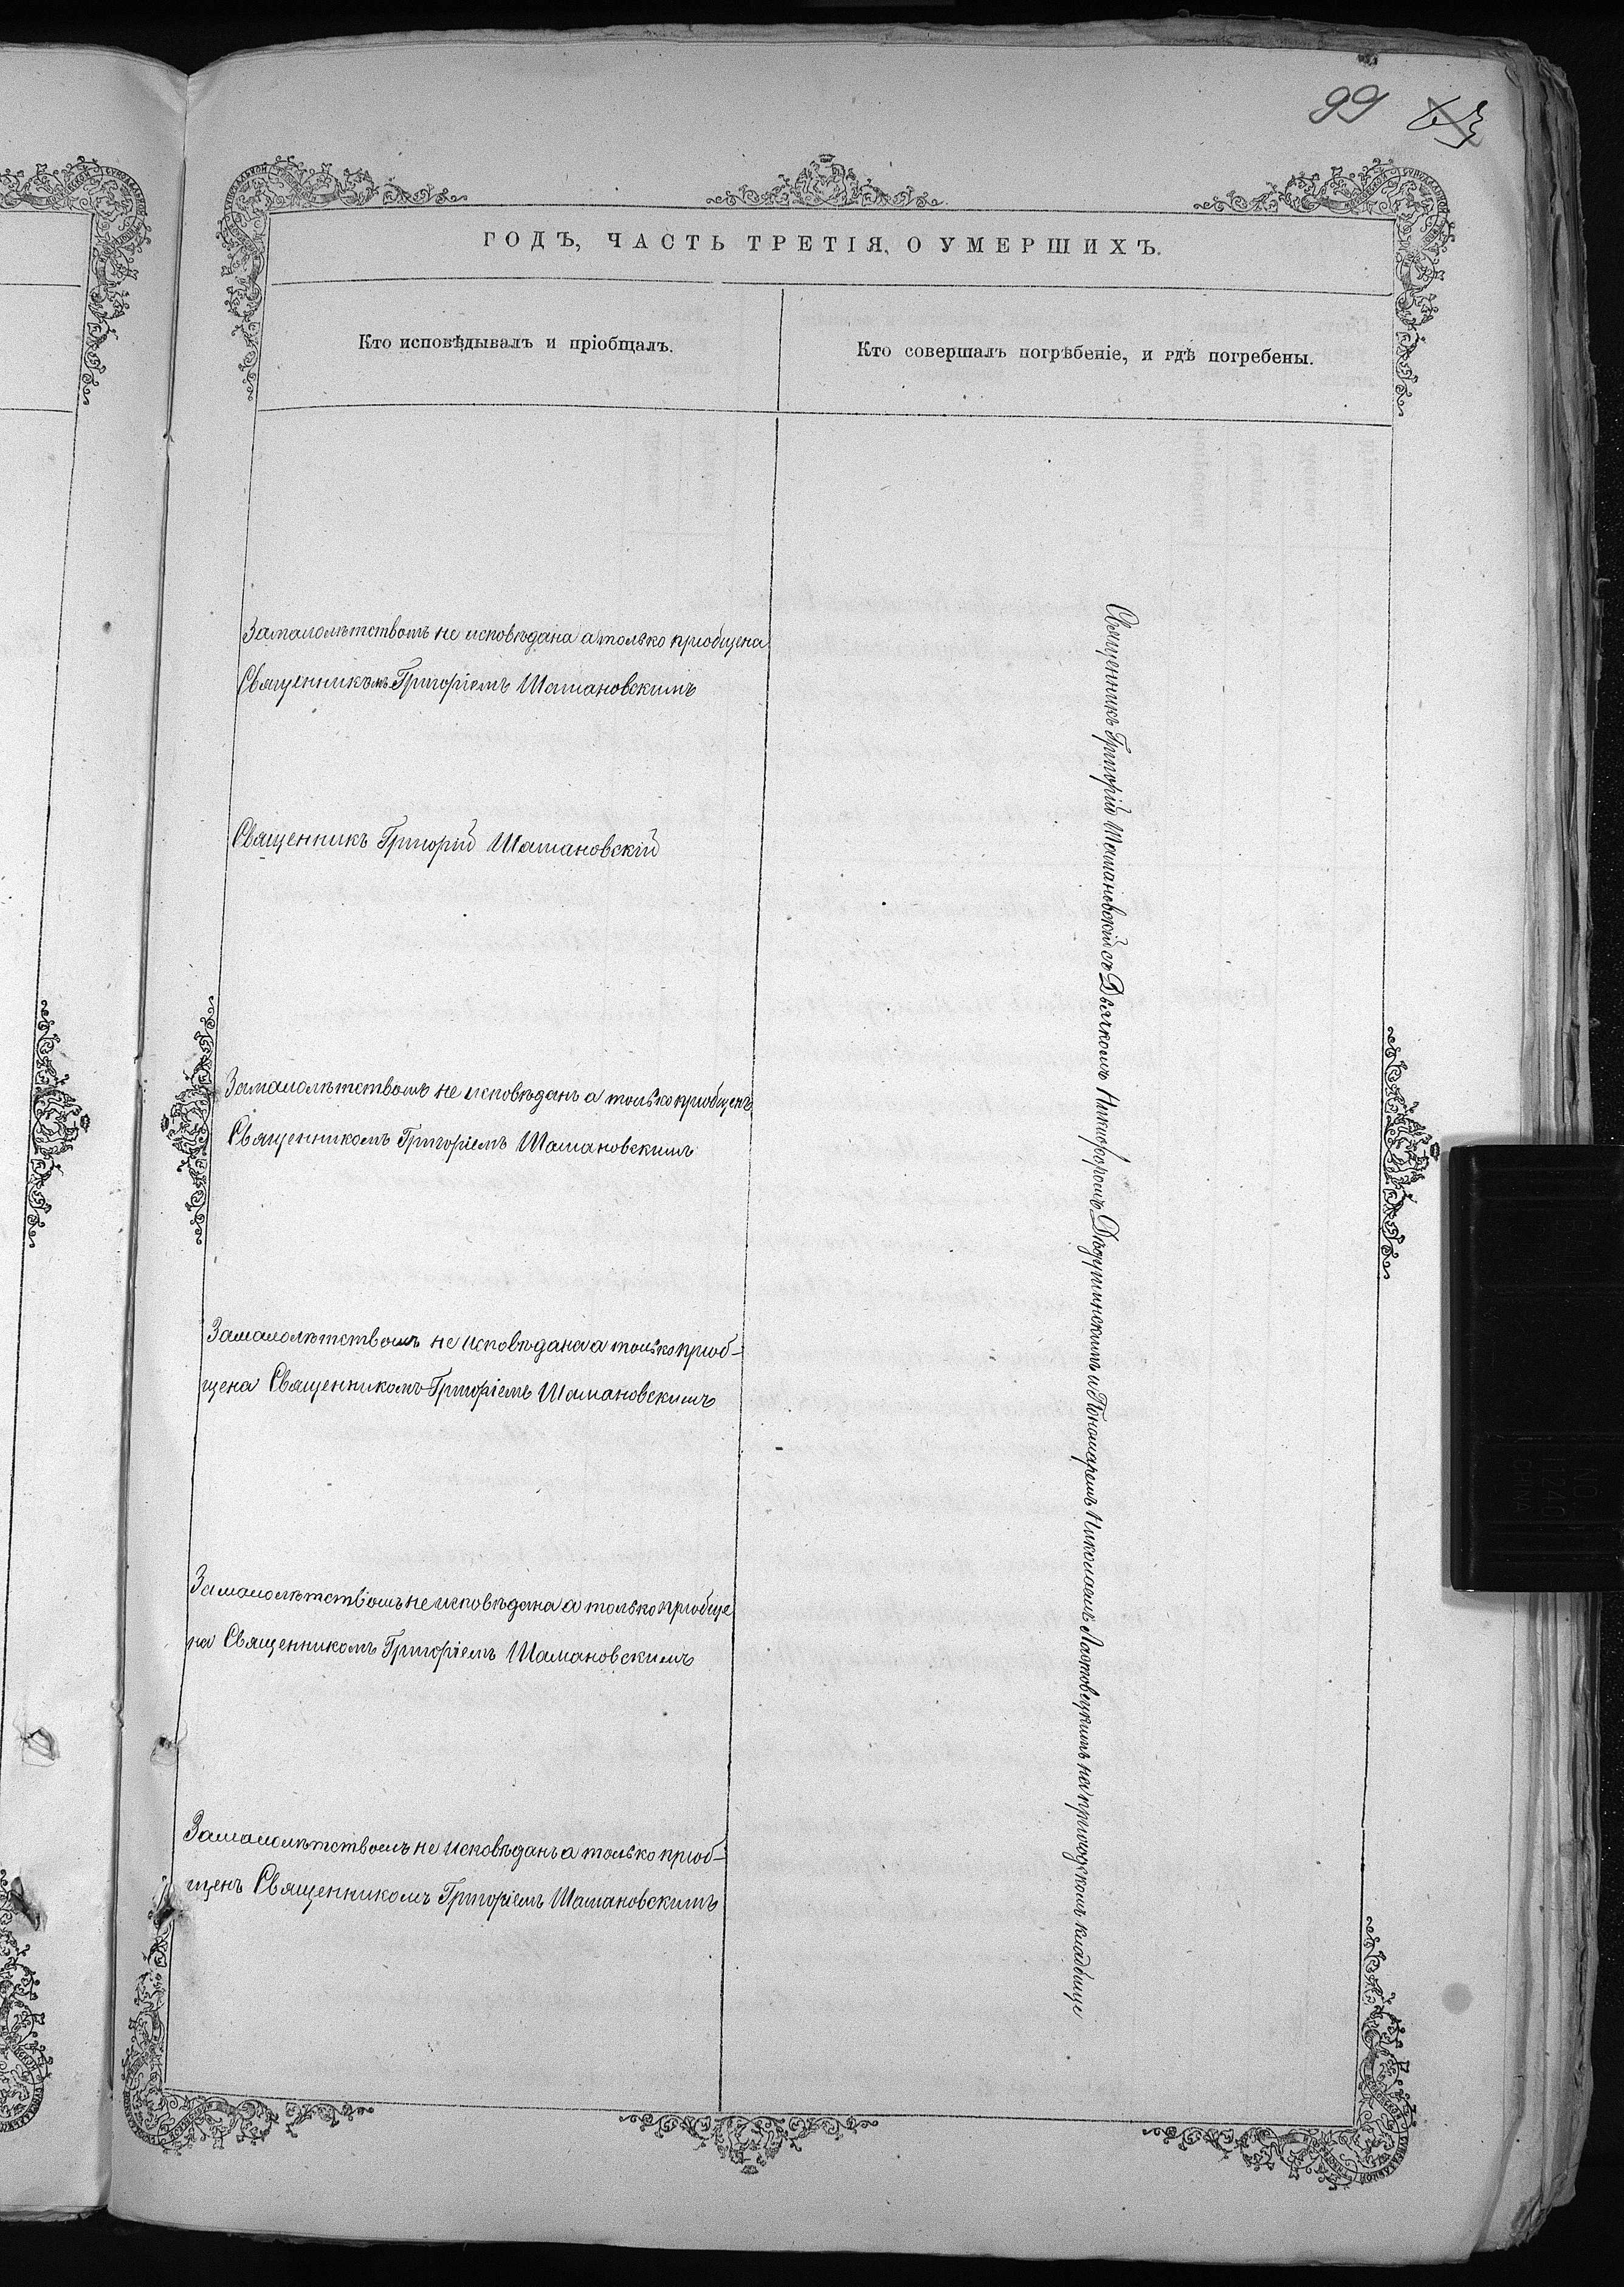 99 63
ГОДЪ, ЧАСТЬ ТРЕТІЯ, О УМЕРШИХЪ.
Кто исповѣдывалъ и пріобщалъ.
Кто совершалъ погрѣбеніе, и гдѣ погребены.
За малолѣтствомъ не исповѣдана а только пріобщена
Священникомъ Григоріемъ Шамановскимъ
Священникъ Григорій Шамановскій
За малолѣтствомъ не исповѣданъ а только пріобщенъ
Священникомъ Григоріемъ Шамановскимъ
За малолѣтствомъ не исповѣдана а только пріоб-
щена Священникомъ Григоріемъ Шамановскимъ
За малолѣтствомъ не исповѣдана а только пріобще
на Священникомъ Григоріемъ Шамановскимъ
За малолѣтствомъ не исповѣданъ а только пріоб-
щенъ Священникомъ Григоріемъ Шамановскимъ
Священникъ Григорій Шамановскій съ Дьячкомъ Никифоромъ и Пономаремъ Николаемъ на приходскомъ кладбище